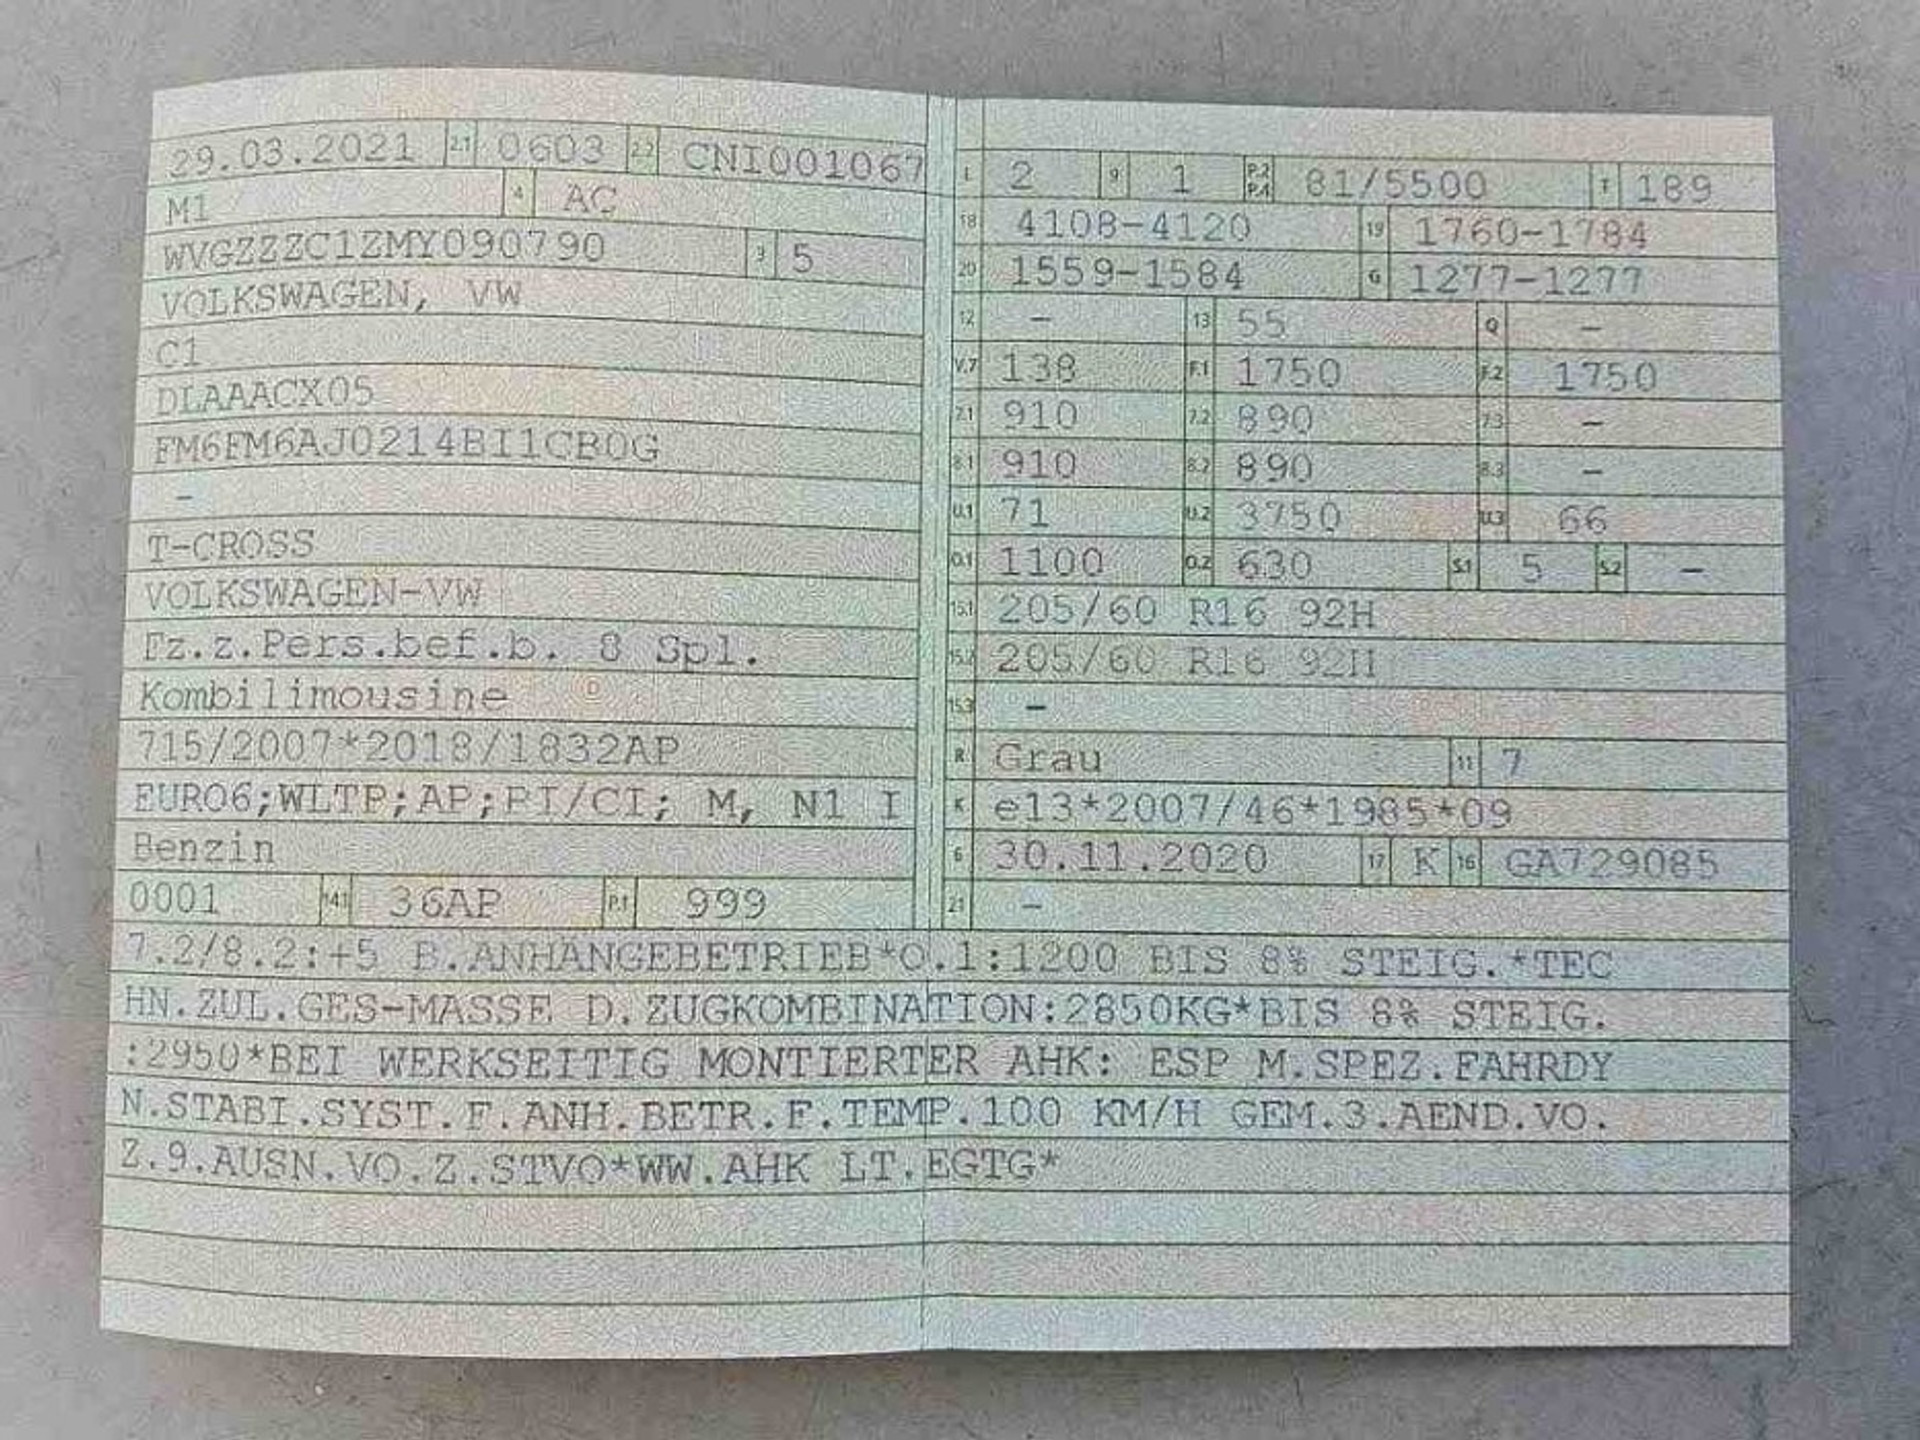 29.03.2021 2.1 0603 2.2 CNI001067
M1 4 AC
WVGZZZC1ZMY090790 3 5
VOLKSWAGEN, VW
C1
DLAAACX05
FM6FM6AJ0214BI1CB0G
-
T-CROSS
VOLKSWAGEN-VW
Fz.z.Pers.bef.b. 8 Spl.
Kombilimousine D
715/2007*2018/1832AP
EURO6;WLTP;AP;PI/CI; M, N1 I
Benzin
0001 14.1 36AP P.1 999
L 2 9 1 P.2 P.4 81/5500 T 189
18 4108-4120 19 1760-1784
20 1559-1584 G 1277-1277
12 - 13 55 Q -
V.7 138 F.1 1750 F.2 1750
7.1 910 7.2 890 7.3 -
8.1 910 8.2 890 8.3 -
U.1 71 U.2 3750 U.3 66
O.1 1100 O.2 630 S.1 5 S.2 -
15.1 205/60 R16 92H
15.2 205/60 R16 92H
15.3 -
R Grau 11 7
K e13*2007/46*1985*09
6 30.11.2020 17 K 16 GA729085
21 -
7.2/8.2:+5 B.ANHÄNGEBETRIEB*O.1:1200 BIS 8% STEIG.*TEC
HN.ZUL.GES-MASSE D.ZUGKOMBINATION:2850KG*BIS 8% STEIG.
:2950*BEI WERKSEITIG MONTIERTER AHK: ESP M.SPEZ.FAHRDY
N.STABI.SYST.F.ANH.BETR.F.TEMP.100 KM/H GEM.3.AEND.VO.
Z.9.AUSN.VO.Z.STVO*WW.AHK LT.EGTG*